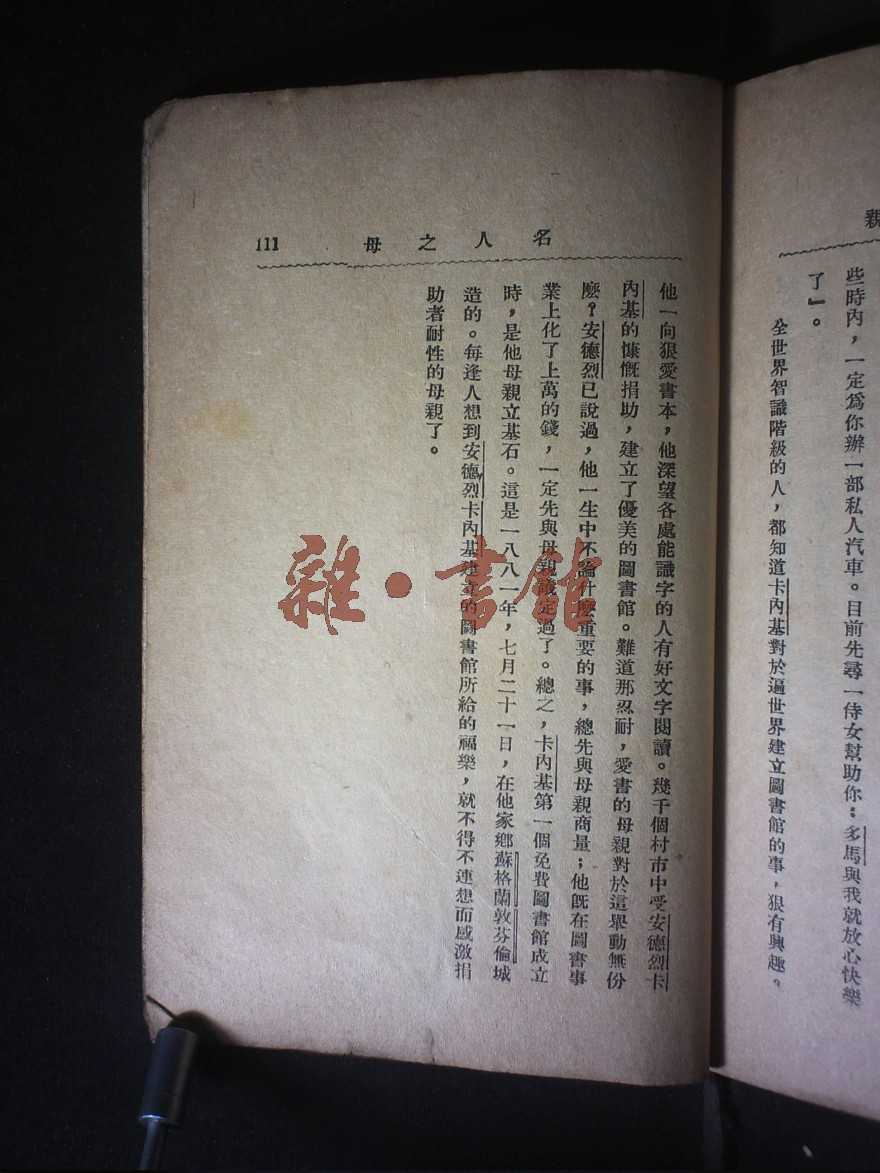 親
些時內，一定爲你辦一部私人汽車。目前先尋一侍女幫助你；多馬與我就放心快樂
了』。
全世界智識階級的人，都知道卡內基對於遍世界建立圖書館的事，狠有興趣。
名人之母
111
他一向狠愛書本，他深望各處能識字的人有好文字閱讀。幾千個村市中受安德烈卡
內基的慷慨捐助，建立了優美的圖書館。難道那忍耐，愛書的母親對於這舉動無份
麼？安德烈已說過，他一生中不論什麼重要的事，總先與母親商量；他旣在圖書事
業上化了上萬的錢，一定先與母親議定過了。總之，卡內基第一個免費圖書館成立
時，是他母親立基石。這是一八八一年，七月二十一日，在他家鄉蘇格蘭敦芬倫城
造的。每逢人想到安德烈卡內基建立的圖書館所給的福樂，就不得不連想而感激捐
助者耐性的母親了。
雜·書館